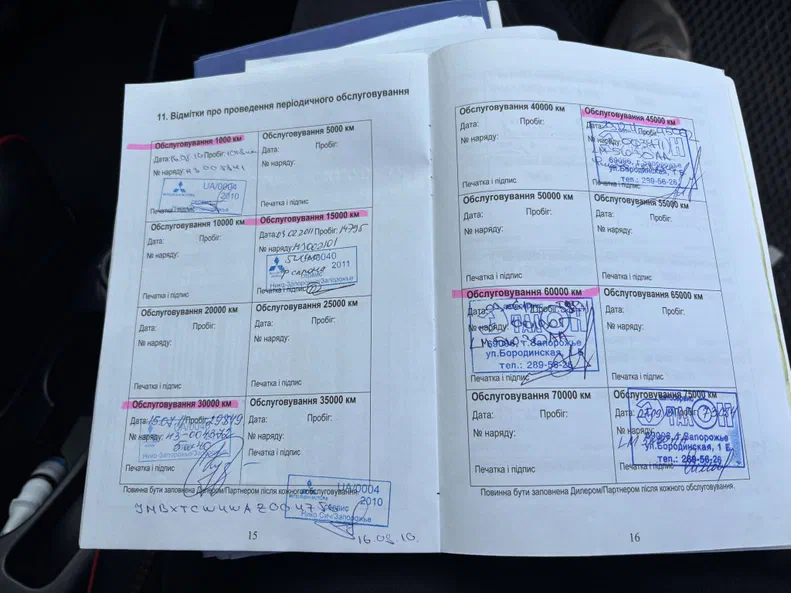 11. Відмітки про проведення періодичного обслуговування
Обслуговування 1000 км
Дата: 16.08.10 Пробіг:
№ наряду:
UA/0004
2010
Печатка і підпис
Обслуговування 5000 км
Дата: Пробіг:
№ наряду:
Печатка і підпис
Обслуговування 10000 км
Дата: Пробіг:
№ наряду:
Печатка і підпис
Обслуговування 15000 км
Дата: 03.02.2011 Пробіг: 14795
№ наряду:
2011
Печатка і підпис
Ника-Запорожье/Запорожье
Обслуговування 20000 км
Дата: Пробіг:
№ наряду:
Печатка і підпис
Обслуговування 25000 км
Дата: Пробіг:
№ наряду:
Печатка і підпис
Обслуговування 30000 км
Дата: Пробіг: 29819
№ наряду:
Печатка і підпис
Обслуговування 35000 км
Дата: Пробіг:
№ наряду:
Печатка і підпис
Повинна бути заповнена Дилером/Партнером після кожного обслуговування.
UA/0004
2010
Запорожье
16.08.10.
15
Обслуговування 40000 км
Дата: Пробіг:
№ наряду:
Печатка і підпис
Обслуговування 45000 км
Дата: Пробіг:
№ наряду:
69096, г. Запорожье
ул.Бородинская, 1 Б
тел.: 289-56-26
Печатка і підпис
Обслуговування 50000 км
Дата: Пробіг:
№ наряду:
Печатка і підпис
Обслуговування 55000 км
Дата: Пробіг:
№ наряду:
Печатка і підпис
Обслуговування 60000 км
Дата: Пробіг:
№ наряду:
69096, г. Запорожье
ул.Бородинская,
тел.: 289-56-26
Печатка і підпис
Обслуговування 65000 км
Дата: Пробіг:
№ наряду:
Печатка і підпис
Обслуговування 70000 км
Дата: Пробіг:
№ наряду:
Печатка і підпис
Обслуговування 75000 км
Дата: Пробіг:
№ наряду:
69096, г. Запорожье
ул.Бородинская, 1 Б
тел.: 289-56-26
Печатка і підпис
Повинна бути заповнена Дилером/Партнером після кожного обслуговування.
16